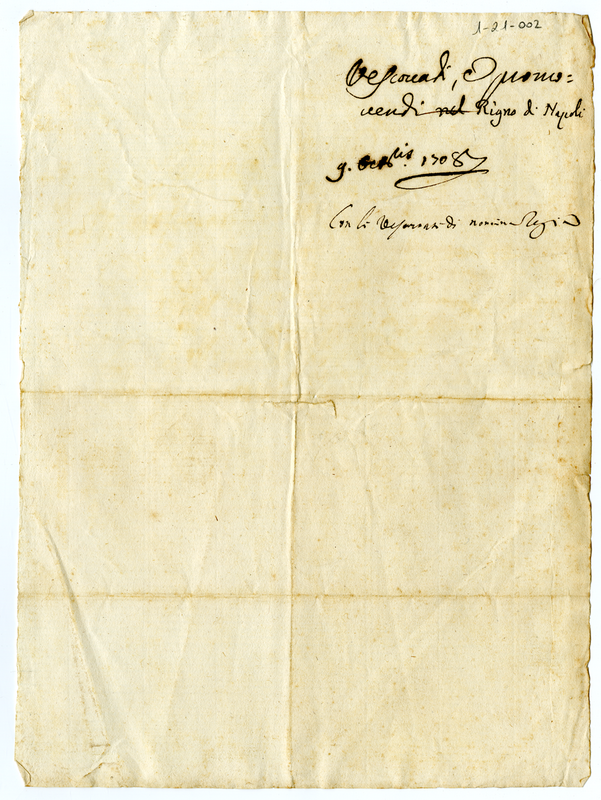 1-21-002
Vescovadi, e promo=
vendi nel Regno di Napoli
9. Octbris 1708
Con li Vescovati di nomina Regia